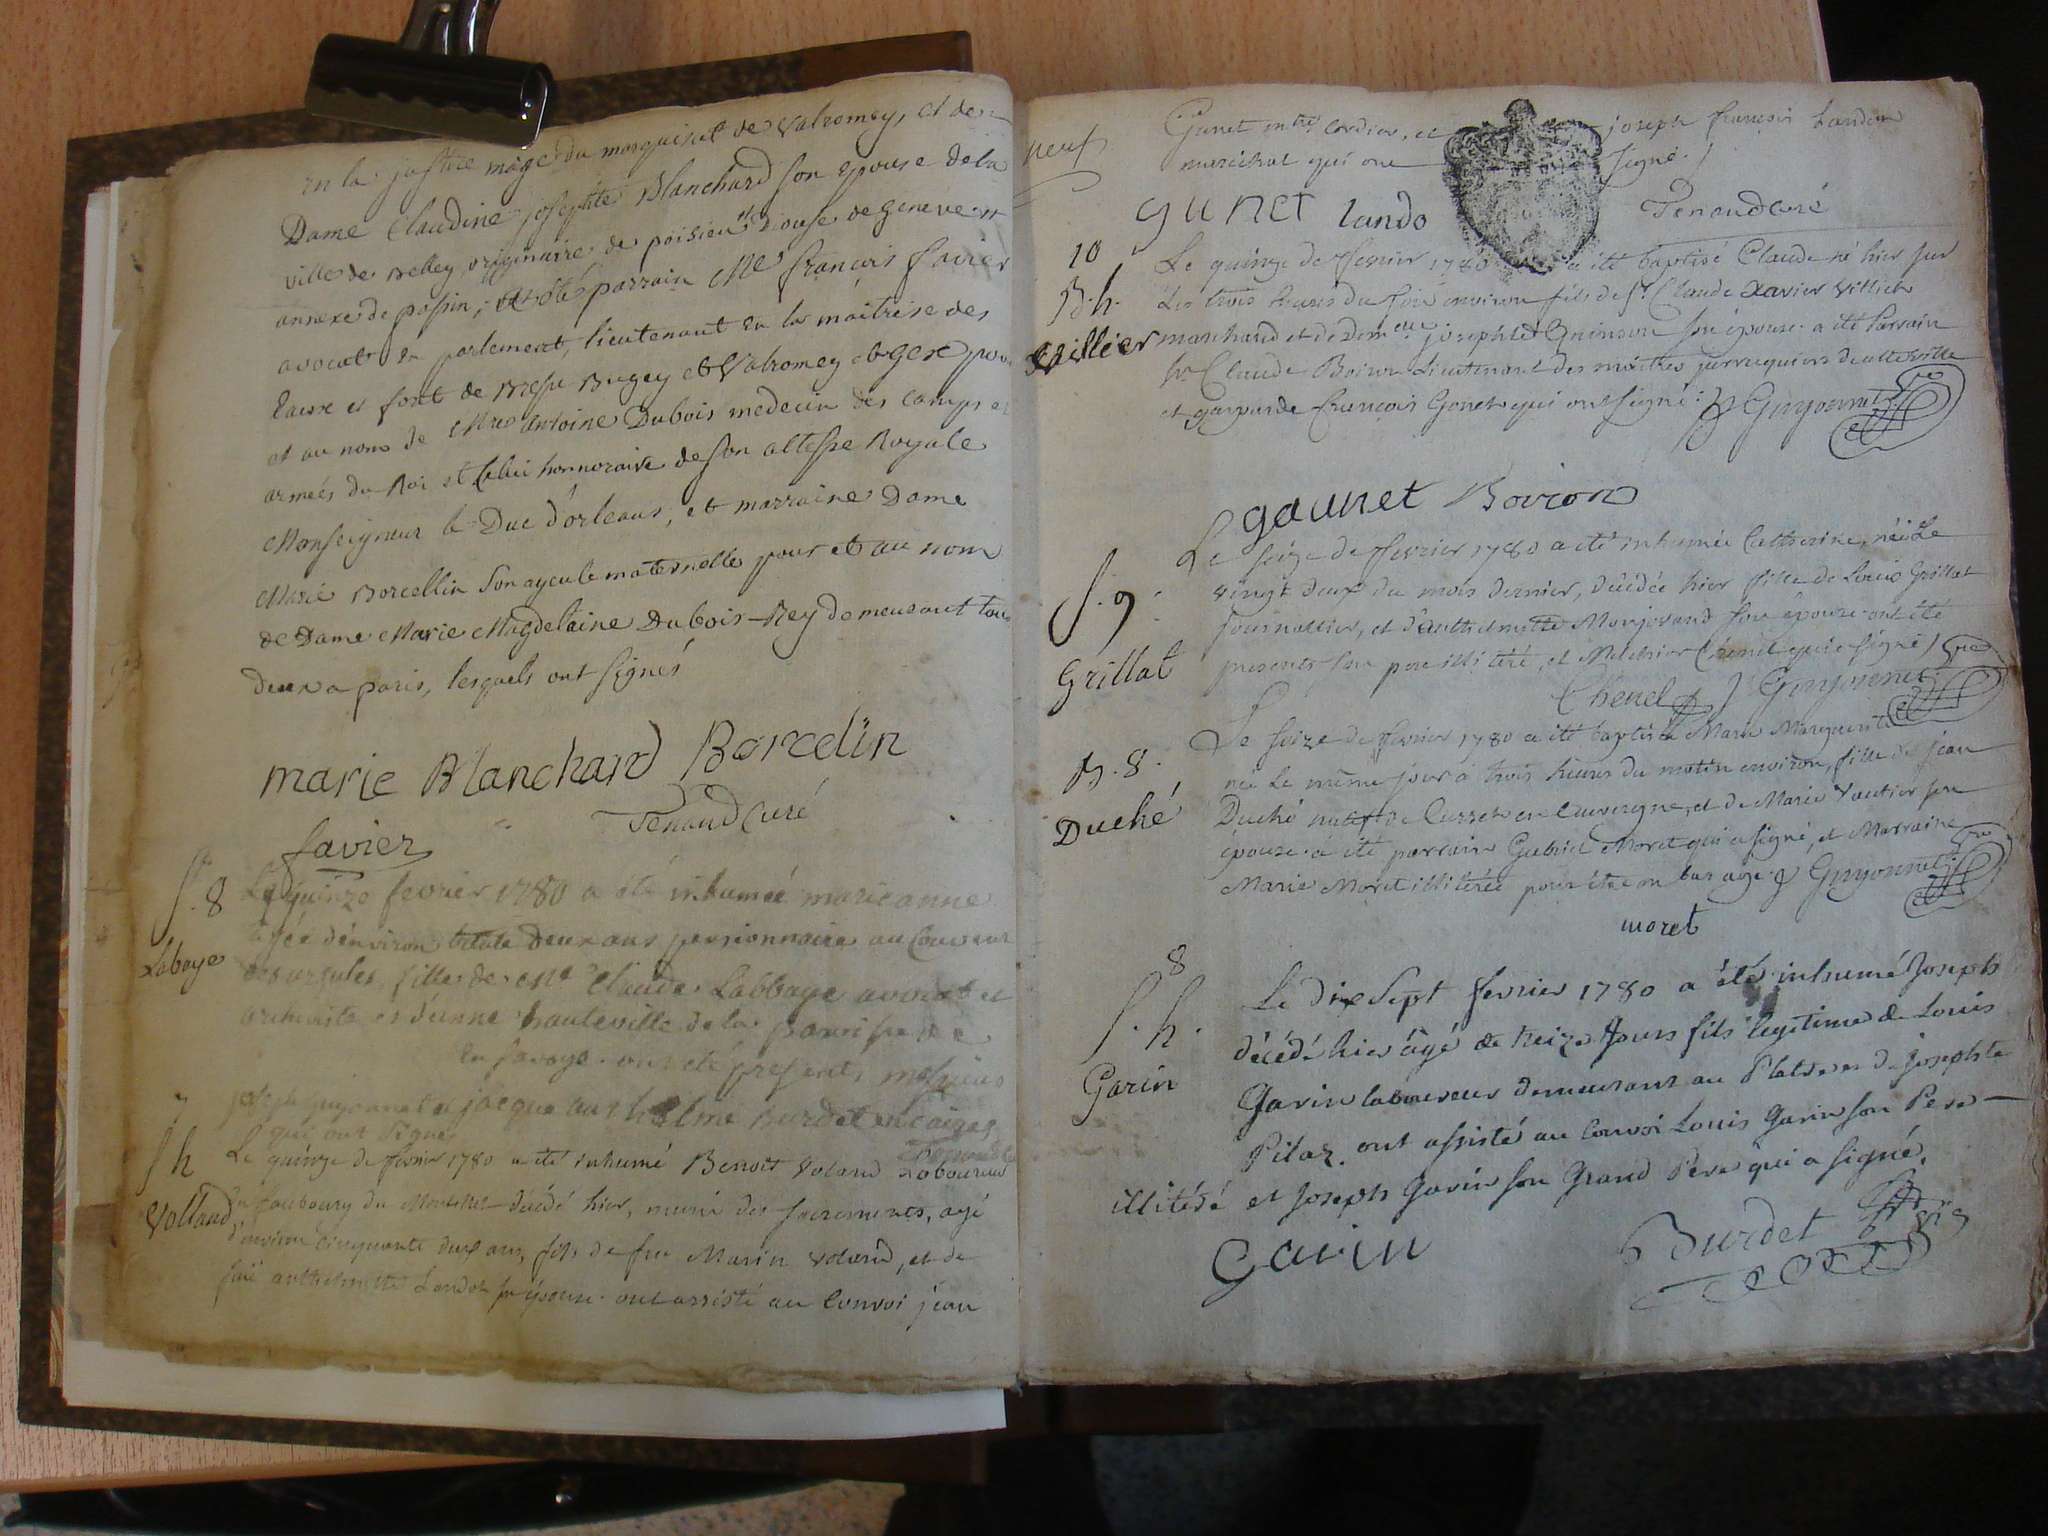 en la justice mage du marquisat de valromey, et de
Dame Claudine josephte Blanchard son epouse de la
ville de Belley originaire de poisieu diocese de geneve et
annexe de possin; a été parrain Me françois favier
avocat en parlement, lieutenant en la maitrise des
Eaux et forêt de Bresse Bugey et Valromey et Gex pour
et au nom de Mre antoine Dubois medecin des camps et
armeés du Roi et celui honnoraire de son altesse Royale
Monseigneur le Duc d'orleans, et marraine Dame
Marie Borcellin son ayeule maternelle pour et au nom
de Dame Marie Magdelaine Dubois Rey demeurant tous
deux a paris, lesquels ont signés
marie Blanchard Borcelin
favier Tenand Curé
S. 8
Labaye
Le quinze fevrier 1780 a été inhumeé marieanne
agée d'environ trente deux ans pensionnaire au Couvent
des ursules, fille de Me Claude Labbaye avocat et
archiviste et d'anne hauteville de la paroisse de
en savoye. ont été presents messieurs
joseph guyonnet et jacque anthelme Burdet vicaires
qui ont signé
7
S h
Volland
Le quinze de fevrier 1780 a été inhumé Benoit Voland Laboureur
du faubourg du décédé hier, muni des sacrements, agé
d'environ cinquante deux ans, fils de feu Marin Voland, et de
feüe anthelmette Landot sa épouse. ont assisté au Convoi jean
neuf
Gunet mtre Cordier, et joseph françois Landon
marechal qui ont signé.
gunet lando Tenand curé
10
B. h.
Villier
Le quinze de fevrier 1780 a été baptisé Claude né hier sur
Les trois heures du soir environ fils de Sr Claude Xavier Villier
marchand et de Demelle josephte Guinson son épouse. a été Parrain
Sr Claude Boiron Lieutenant des maitres perruquiers de cette ville
et garparde françois Gonet qui ont signé. Guyonnet vre
gaunet Boiron
S. 9.
Grillat
Le seize de fevrier 1780 a été inhumée Catherine, née Le
vingt deux du mois dernier, décédée hier fille de Louis Grillat
journallier, et d'anthelmette Monjovand son épouse. ont été
presents son pere illitéré, et Melchior Chenel qui a signé
Chenel Guyonnet vre
B. 8.
Duché
Le seize de fevrier 1780 a été baptisée Marie Marguerite
née Le même jour à trois heures du matin environ, fille de jean
Duché natif de Cusset en auvergne, et de Marie Vautier son
épouse. a été parrain Gabriel Moret qui a signé, et Marraine
Marie Moret illitérée pour être en bas age. Guyonnet vre
moret
8
S. h.
Garin
Le dix Sept fevrier 1780 a été inhumé Joseph
décédé hier âgé de treize Jours fils legitime de Louis
Garin laboureur demeurant au Plat et de Josephte
Pilaz. ont assisté au Convoi Louis Garin son Pere
illitéré et Joseph Garin son Grand Pere qui a signé.
Garin Burdet